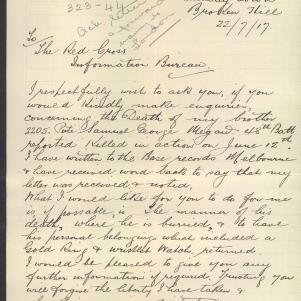 323-44
Ack letter
& forward
London
Broken Hill
22/7/17
To
The Red Cross
Information Bureau
I respectfully wish to ask you, if you
would kindly make enquiries,
concerning the Death of my brother
2205. Pte Samuel George Megard 48th Batt
reported Killed in action on June 12th
I have written to the Base records Melbourne
& have received word back to say that my
letter was received & noted,
What I would like for you to do for me
is, if possable, is The manner of his
death, where he is buried, & to have
his personal belonging which included a
Gold Ring & wristlet watch, returned.
I would be pleased to give you any
further information if required, Trusting you
will forgive the liberty I have taken &